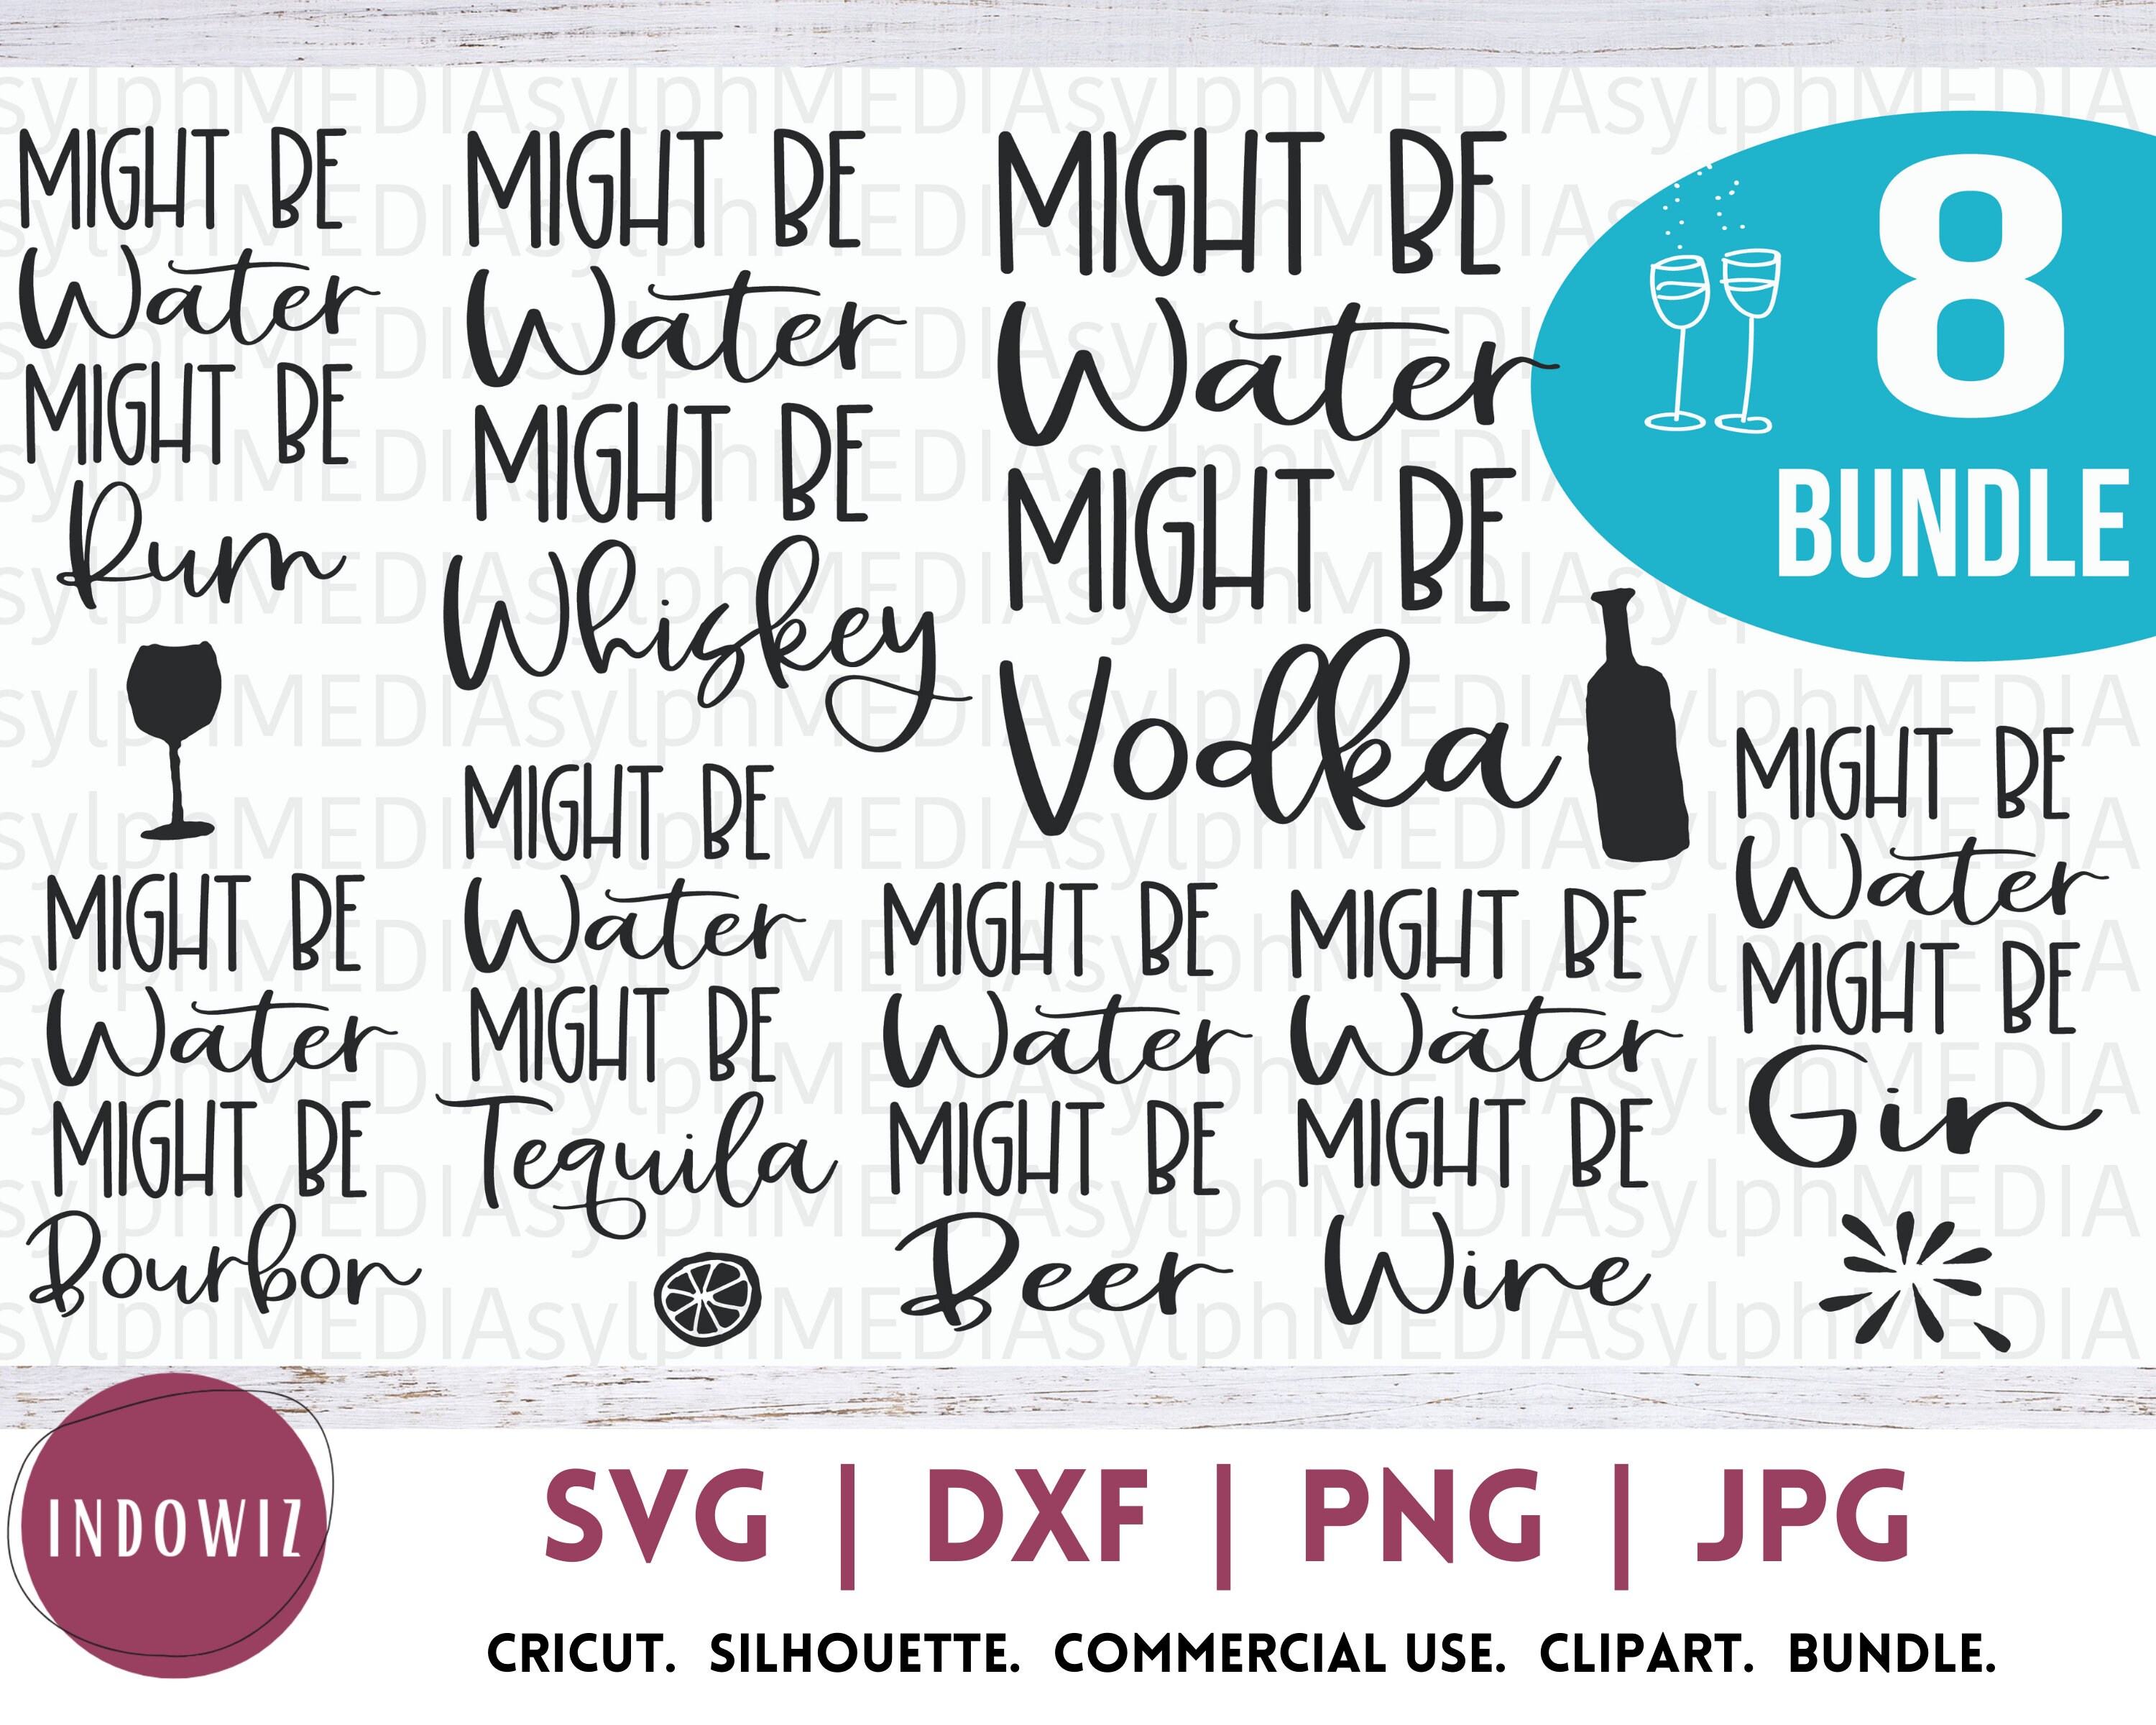 MIGHT BE
Water
MIGHT BE
Rum
MIGHT BE
Water
MIGHT BE
Whiskey
MIGHT BE
Water
MIGHT BE
Vodka
8
BUNDLE
MIGHT BE
Water
MIGHT BE
Bourbon
MIGHT BE
Water
MIGHT BE
Tequila
MIGHT BE
Water
MIGHT BE
Beer
MIGHT BE
Water
MIGHT BE
Wine
MIGHT BE
Water
MIGHT BE
Gin
AsylphMEDIA
INDOWIZ
SVG | DXF | PNG | JPG
CRICUT. SILHOUETTE. COMMERCIAL USE. CLIPART. BUNDLE.